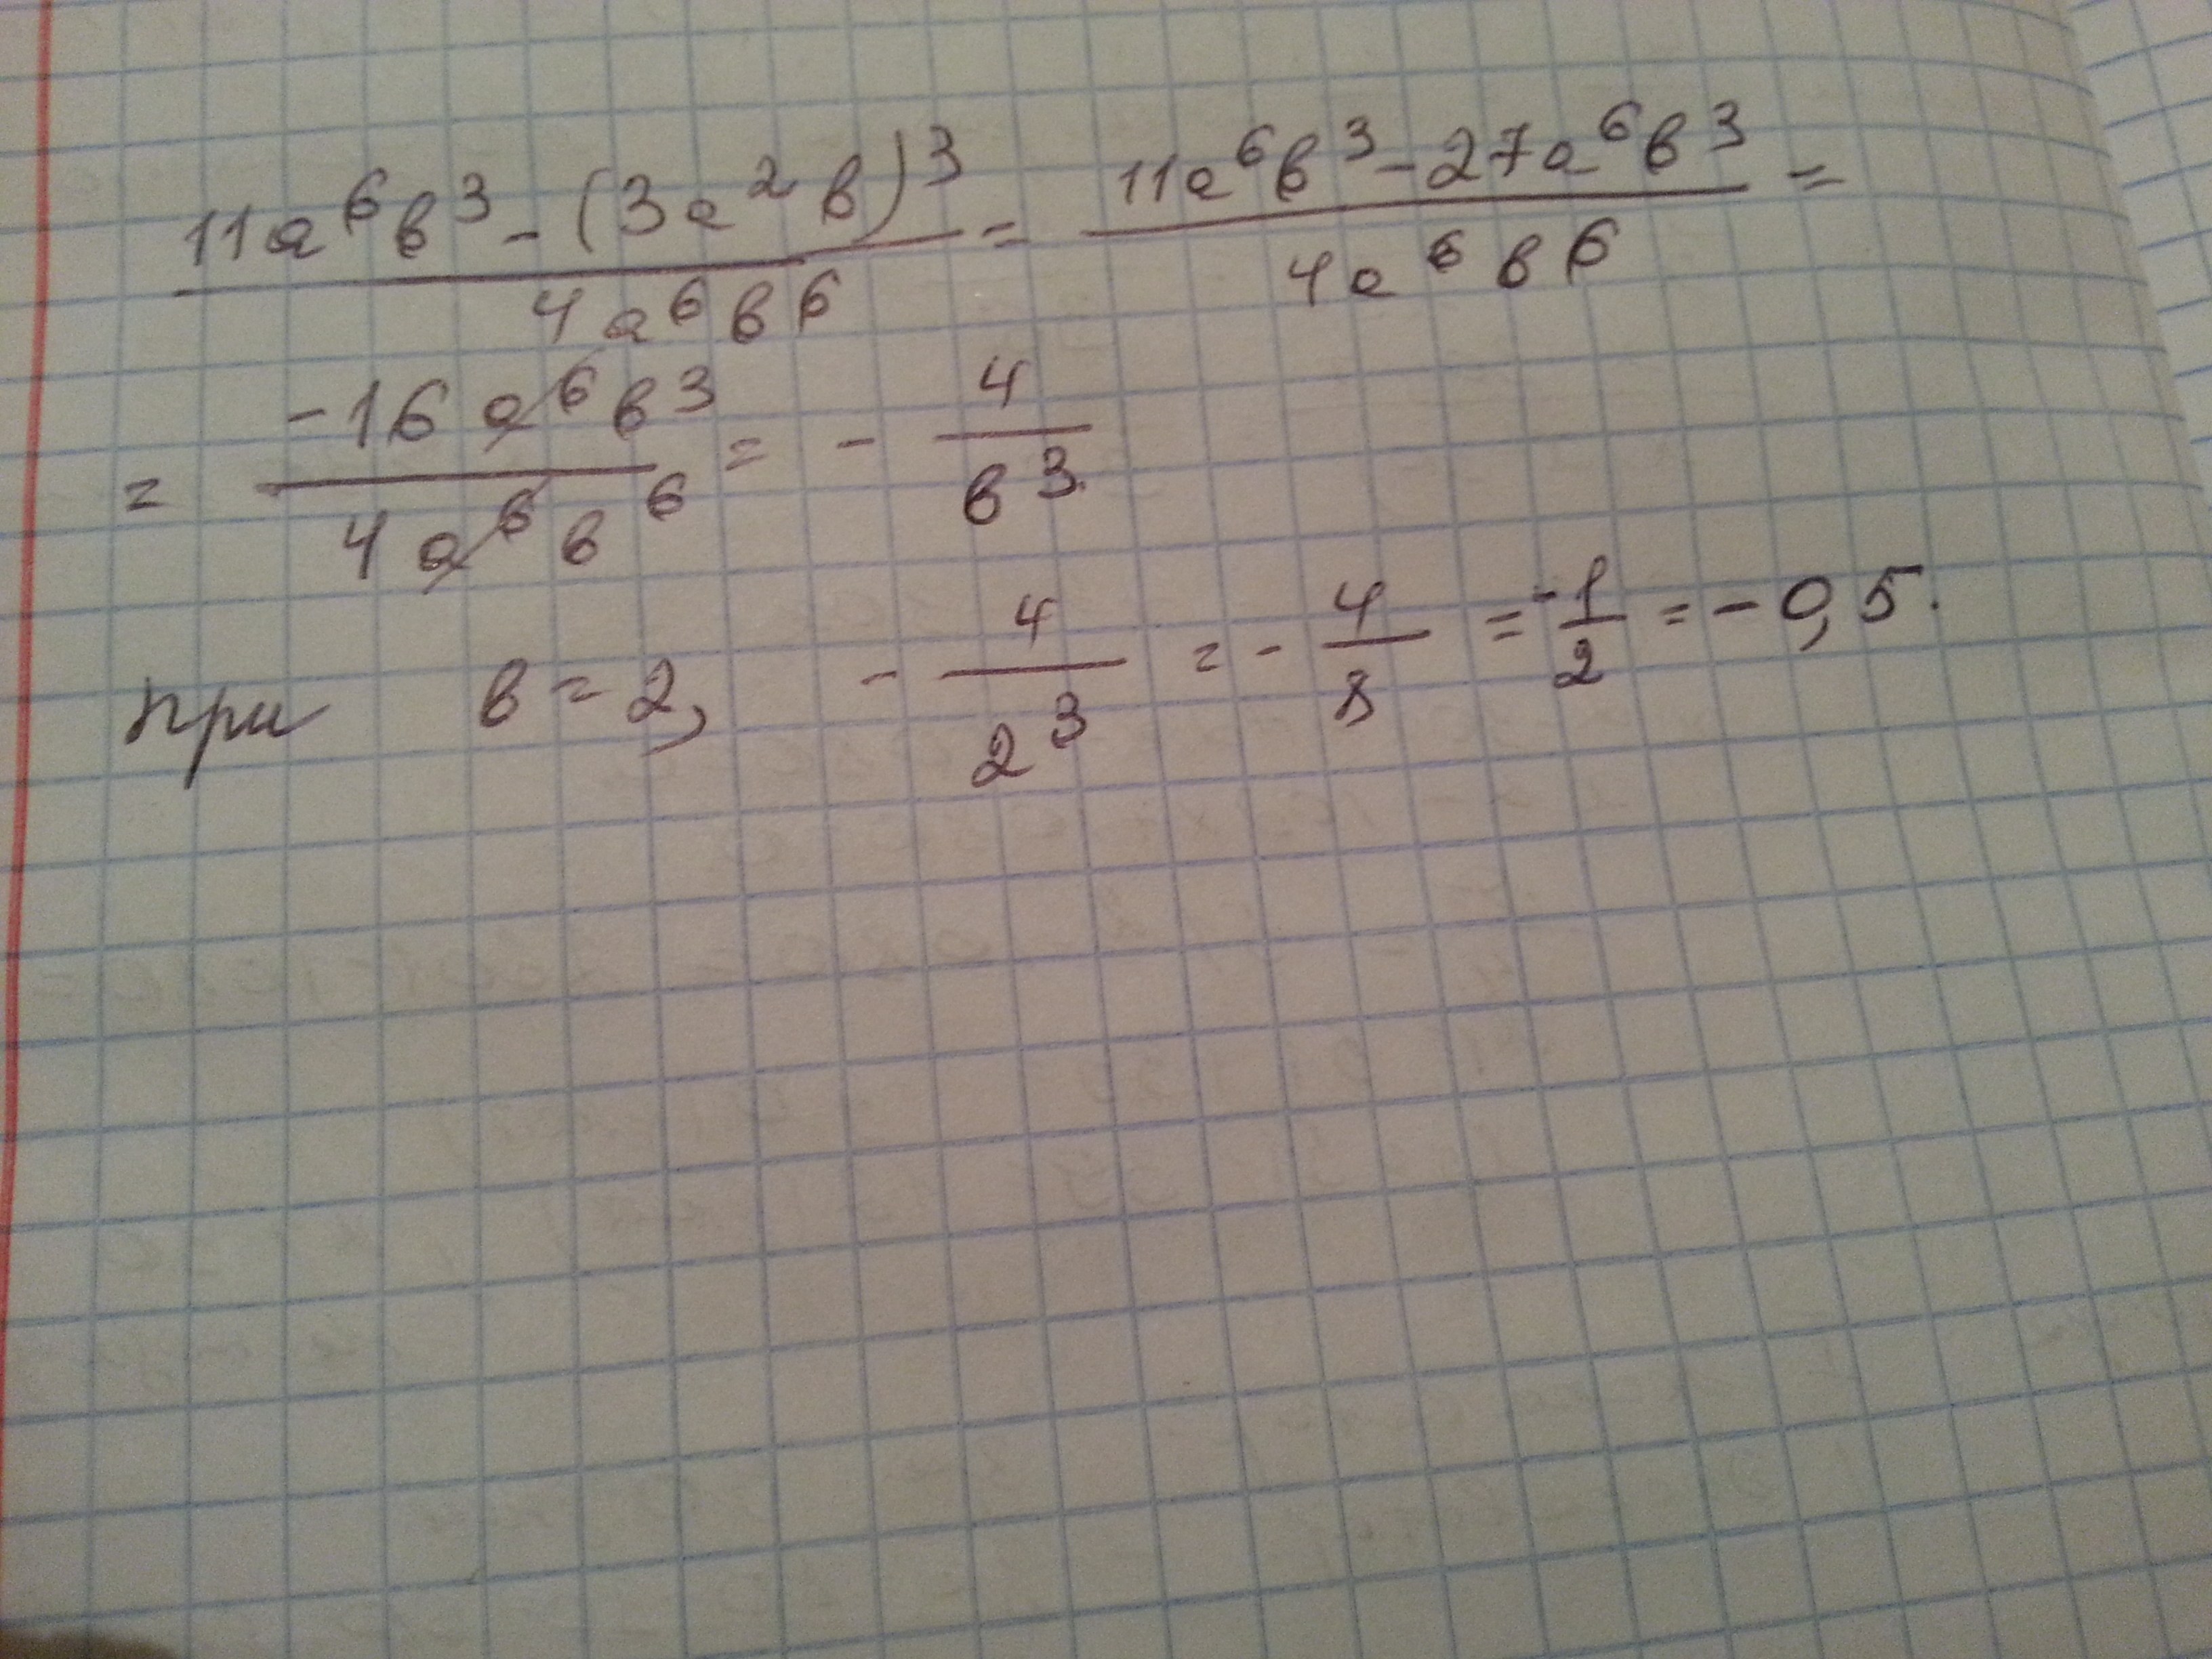 (11a⁶в³ - (3a²в)³)/(4a⁶в⁶) = (11a⁶в³ - 27a⁶в³)/(4a⁶в⁶) =
= (-16a⁶в³)/(4a⁶в⁶) = - 4/в³
при в = 2, - 4/2³ = - 4/8 = -1/2 = - 0,5.